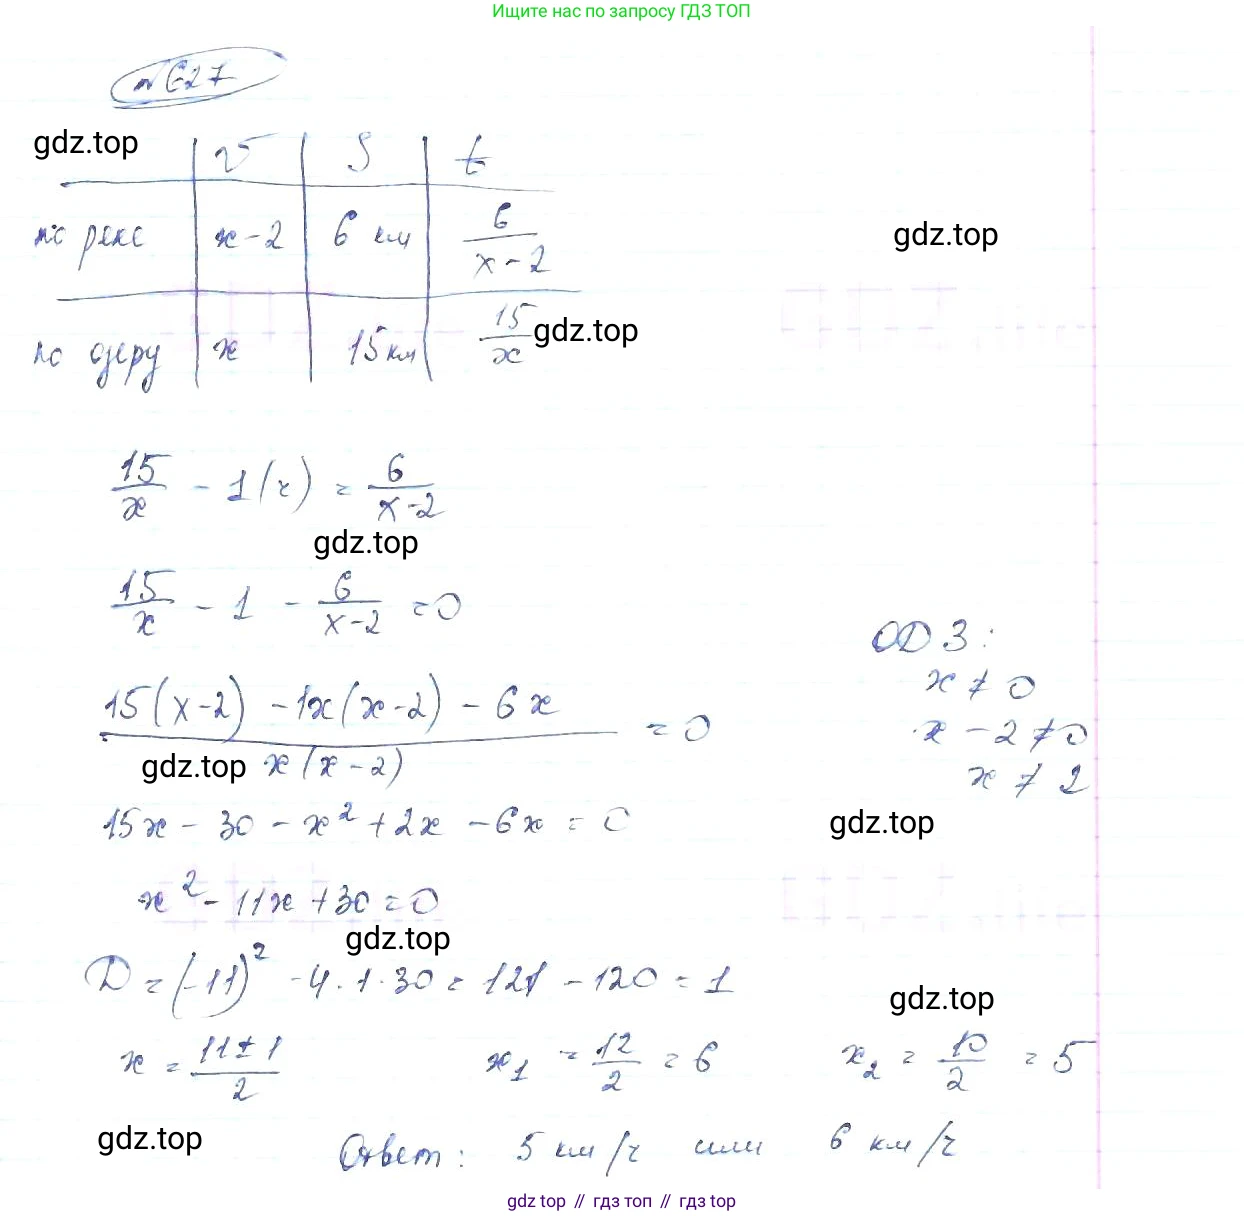 Ищите нас по запросу ГДЗ ТОП
№ 627
gdz.top
v S t
по реке x-2 6 км 6/(x-2)
gdz.top
по озеру x 15 км 15/x
gdz.top
15/x - 1 (ч) = 6/(x-2)
gdz.top
15/x - 1 - 6/(x-2) = 0
ОДЗ:
x ≠ 0
x - 2 ≠ 0
x ≠ 2
(15(x-2) - 1x(x-2) - 6x)/(x(x-2)) = 0
gdz.top
15x - 30 - x² + 2x - 6x = 0
gdz.top
x² - 11x + 30 = 0
gdz.top
D = (-11)² - 4·1·30 = 121 - 120 = 1
gdz.top
x = (11±1)/2 x₁ = 12/2 = 6 x₂ = 10/2 = 5
gdz.top
Ответ: 5 км/ч или 6 км/ч
gdz top // гдз топ // gdz top